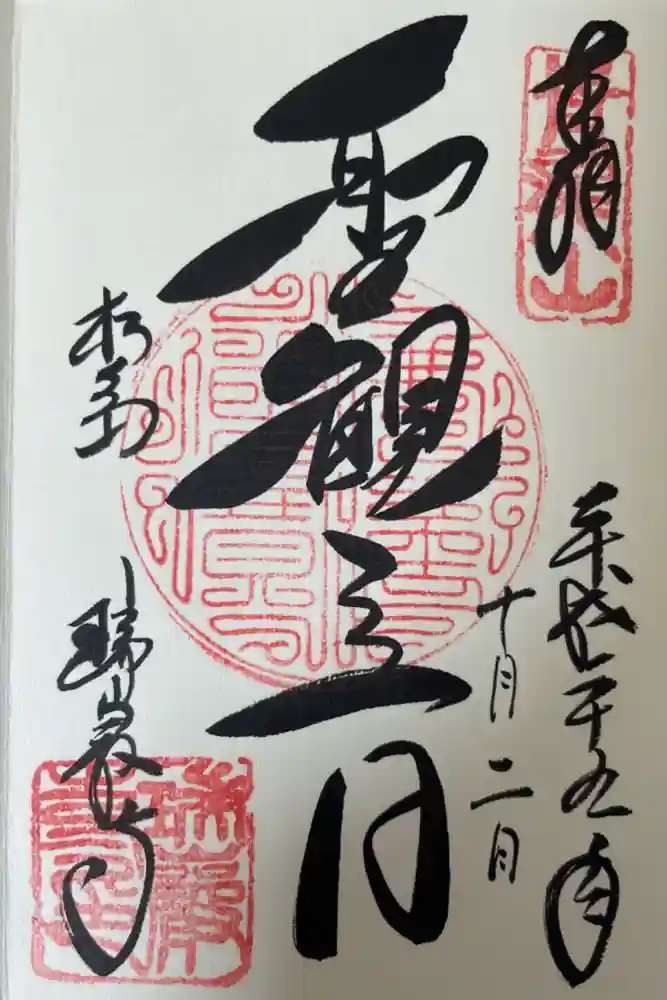 奉拝
平成二十五年
十月二日
聖観音
松島
瑞巌寺